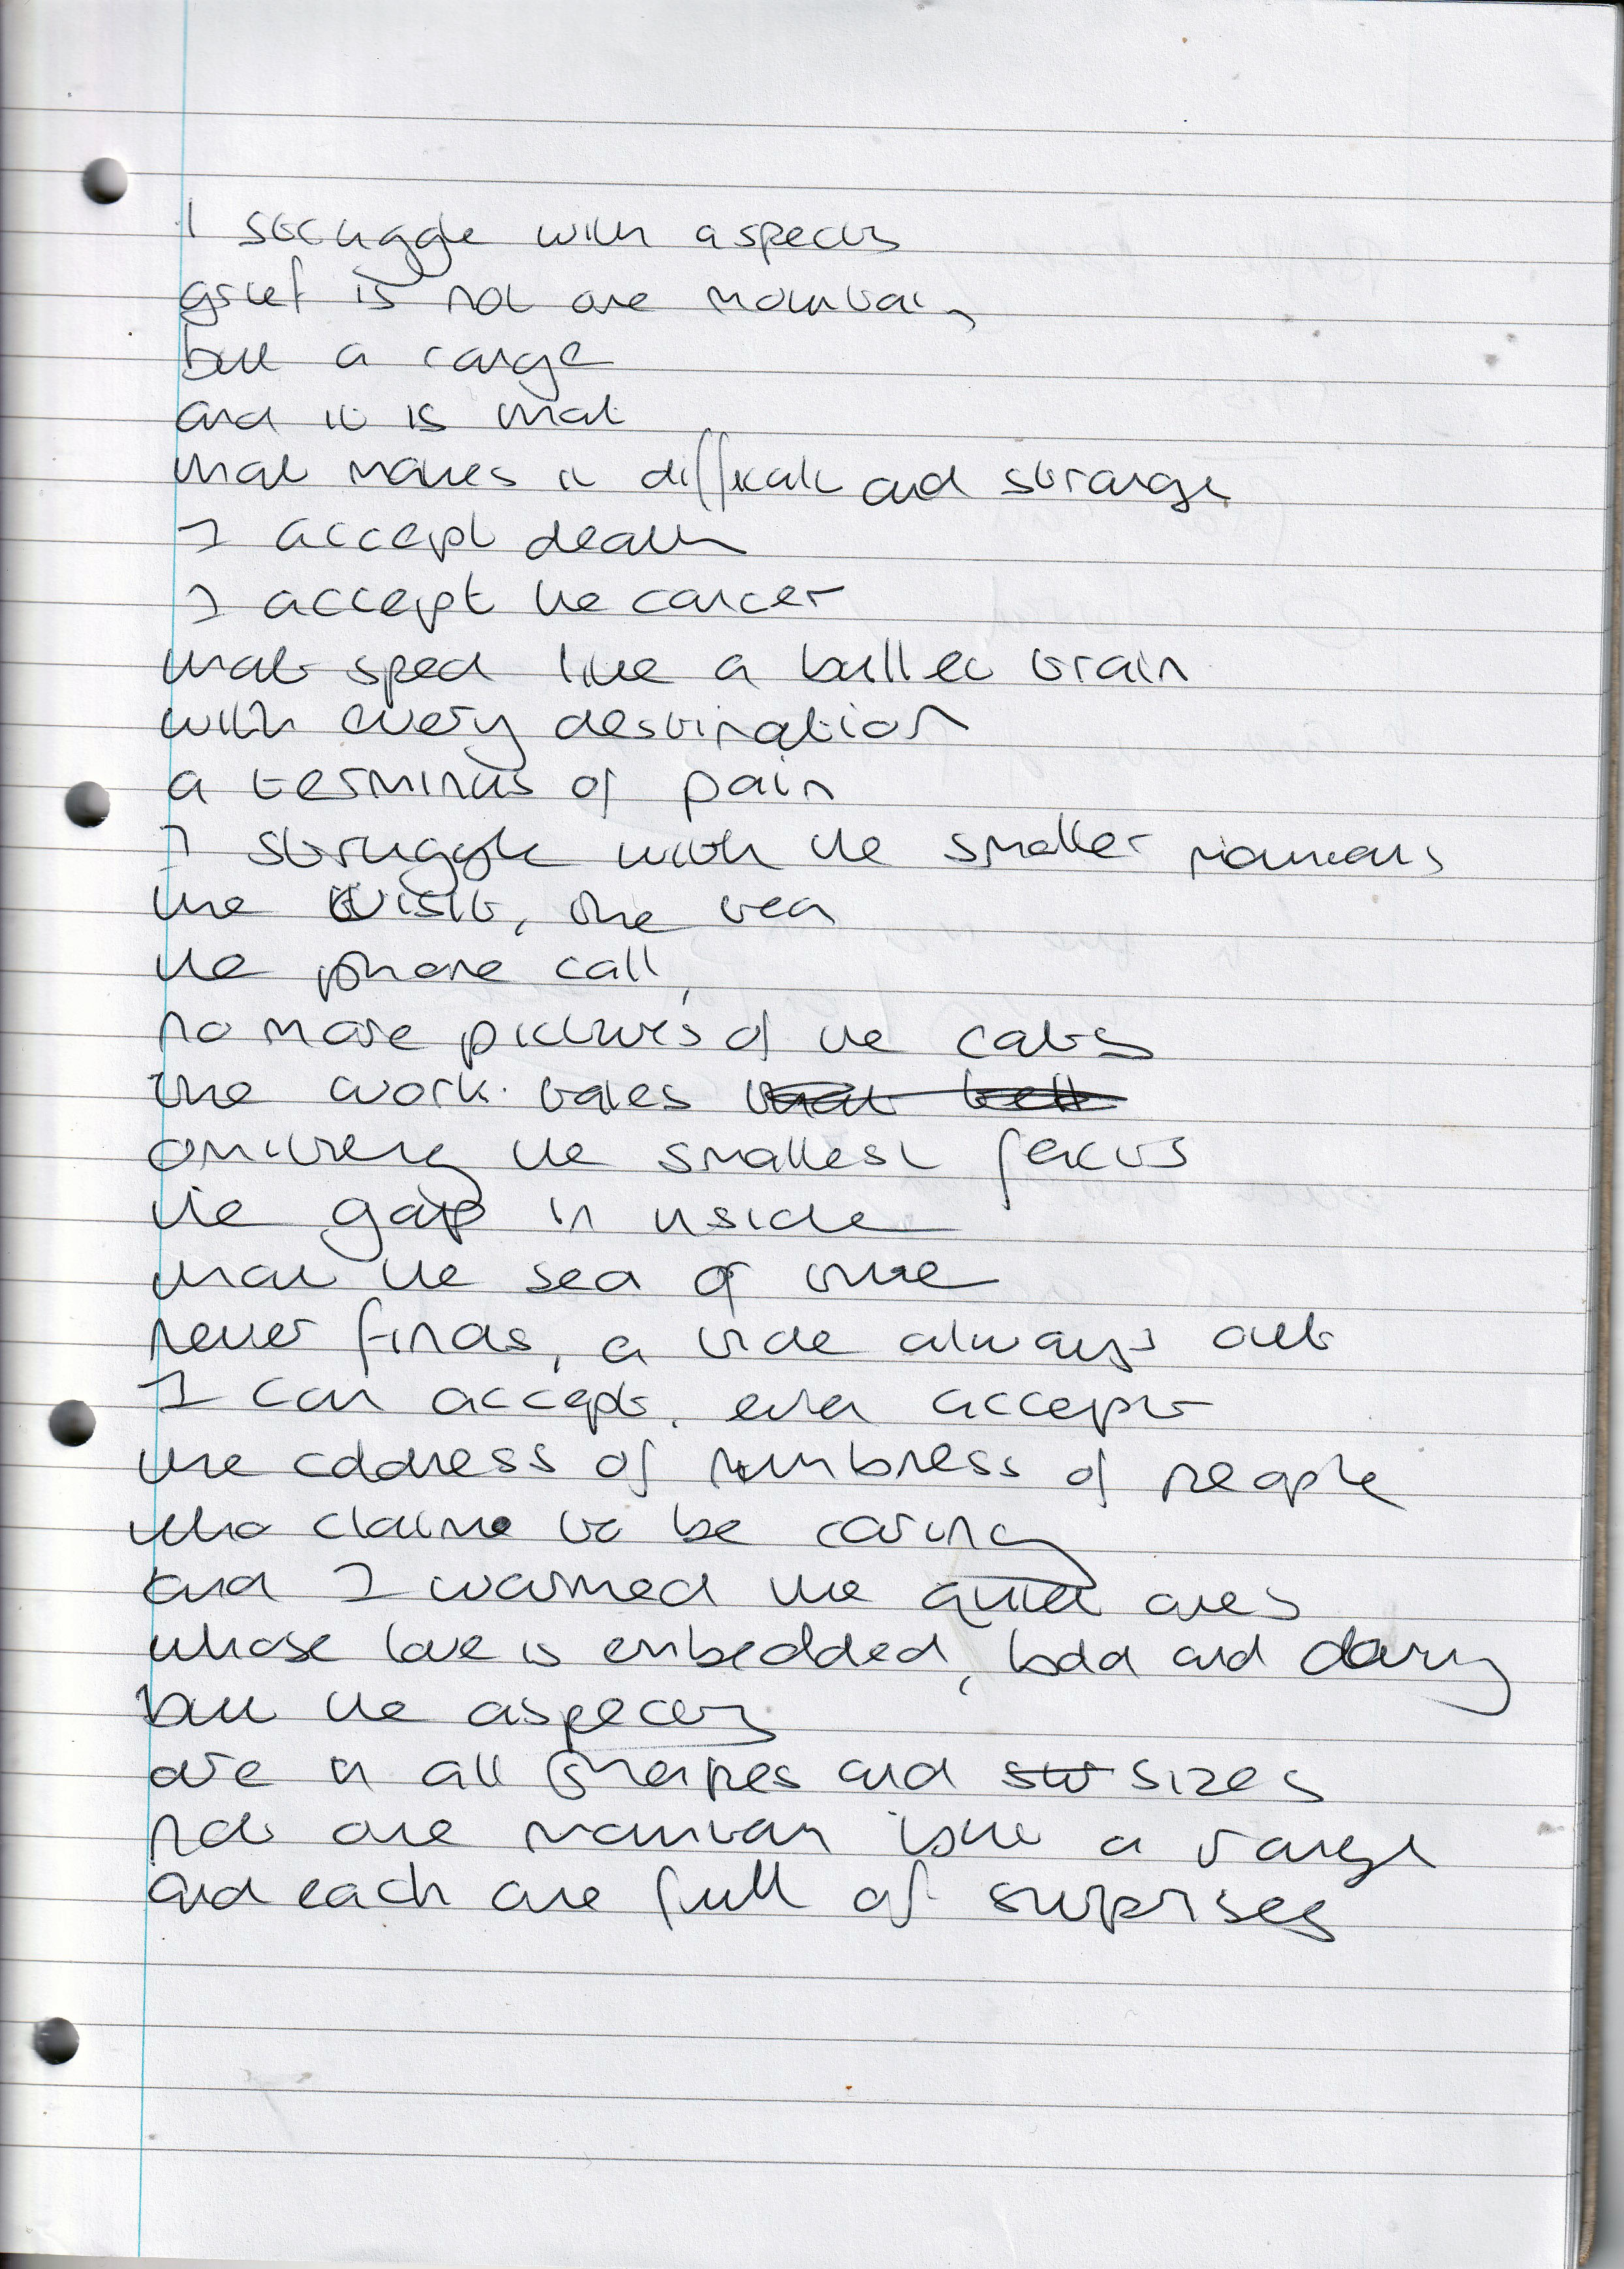 I struggle with aspects
grief is not one mountain
but a range
and it is that
that makes it difficult and strange
I accept death
I accept the cancer
that sped like a bullet train
with every destination
a terminus of pain
I struggle with the smaller moments
the visit, the tea
the phone call,
no more pictures of the cats
the work tales that
omitting the smallest
the gap in inside
that the sea of time
never finds, a tide always out
I can accept, even accept
the address of numbness of people
who claim to be caring
and I warmed the quiet ones
whose love is embedded, bold and daring
but the aspects
are in all shapes and sizes
not one mountain but a range
and each are full of surprises